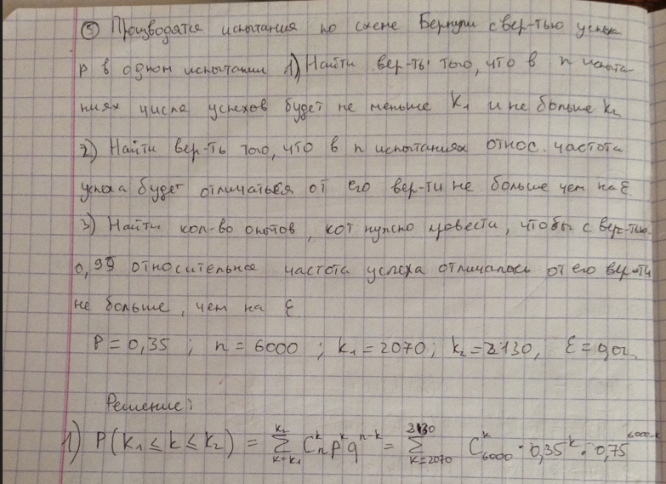 ⑤ Производятся испытания по схеме Бернули с вер-тью успеха
p в одном испытании 1) Найти вер-ть того, что в n испыта
ниях число успехов будет не меньше k₁ и не больше k₂
2) Найти вер-ть того, что в n испытаниях относ. частота
успеха будет отличаться от его вер-ти не больше чем на ε.
3) Найти кол-во опытов, кот нужно провести, чтобы с вер-тью
0,99 относительная частота успеха отличалось от его вер-ти
не больше, чем на ε
P = 0,35 ; n = 6000 ; k₁ = 2070; k₂ = 2130, ε = 0,01.
Решение:
1) P(k₁ ≤ k ≤ k₂) = ∑_{k=k₁}^{k₂} C_n^k p^k q^{n-k} = ∑_{k=2070}^{2130} C_{6000}^k · 0,35^k · 0,75^{6000-k}